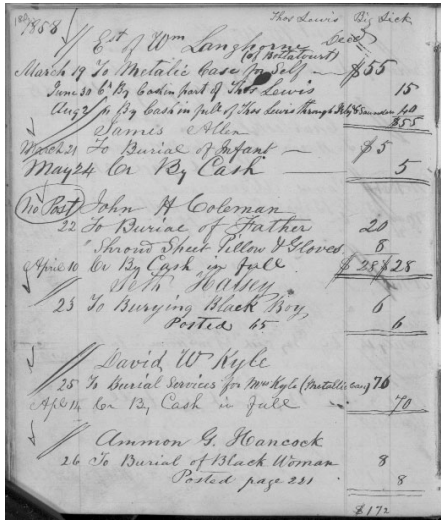 180
1858
Thos Lewis Big Lick
Est of Wm Langhorne Decd
(of Bottatourt)
March 19 To Metalic Case for Self $55
June 30 Cr By Cash in part of Thos Lewis 15
Aug 2 By Cash in full of Thos Lewis through 40
$55
James Allen
March 21 To Burial of Infant $5
May 24 Cr By Cash 5
No Post John H Coleman
22 To Burial of Father 20
" Shroud Sheet Pillow & Gloves 8
April 10 Cr By Cash in full $28 $28
Seth Halsey
23 To Burying Black Boy, 6
Posted 65 6
David W Kyle
25 To Burial Services for Mrs Kyle (Metallic case) 70
Apl 14 Cr By Cash in full 70
Ammon G. Hancock
26 To Burial of Black Woman 8
Posted page 221 8
$172